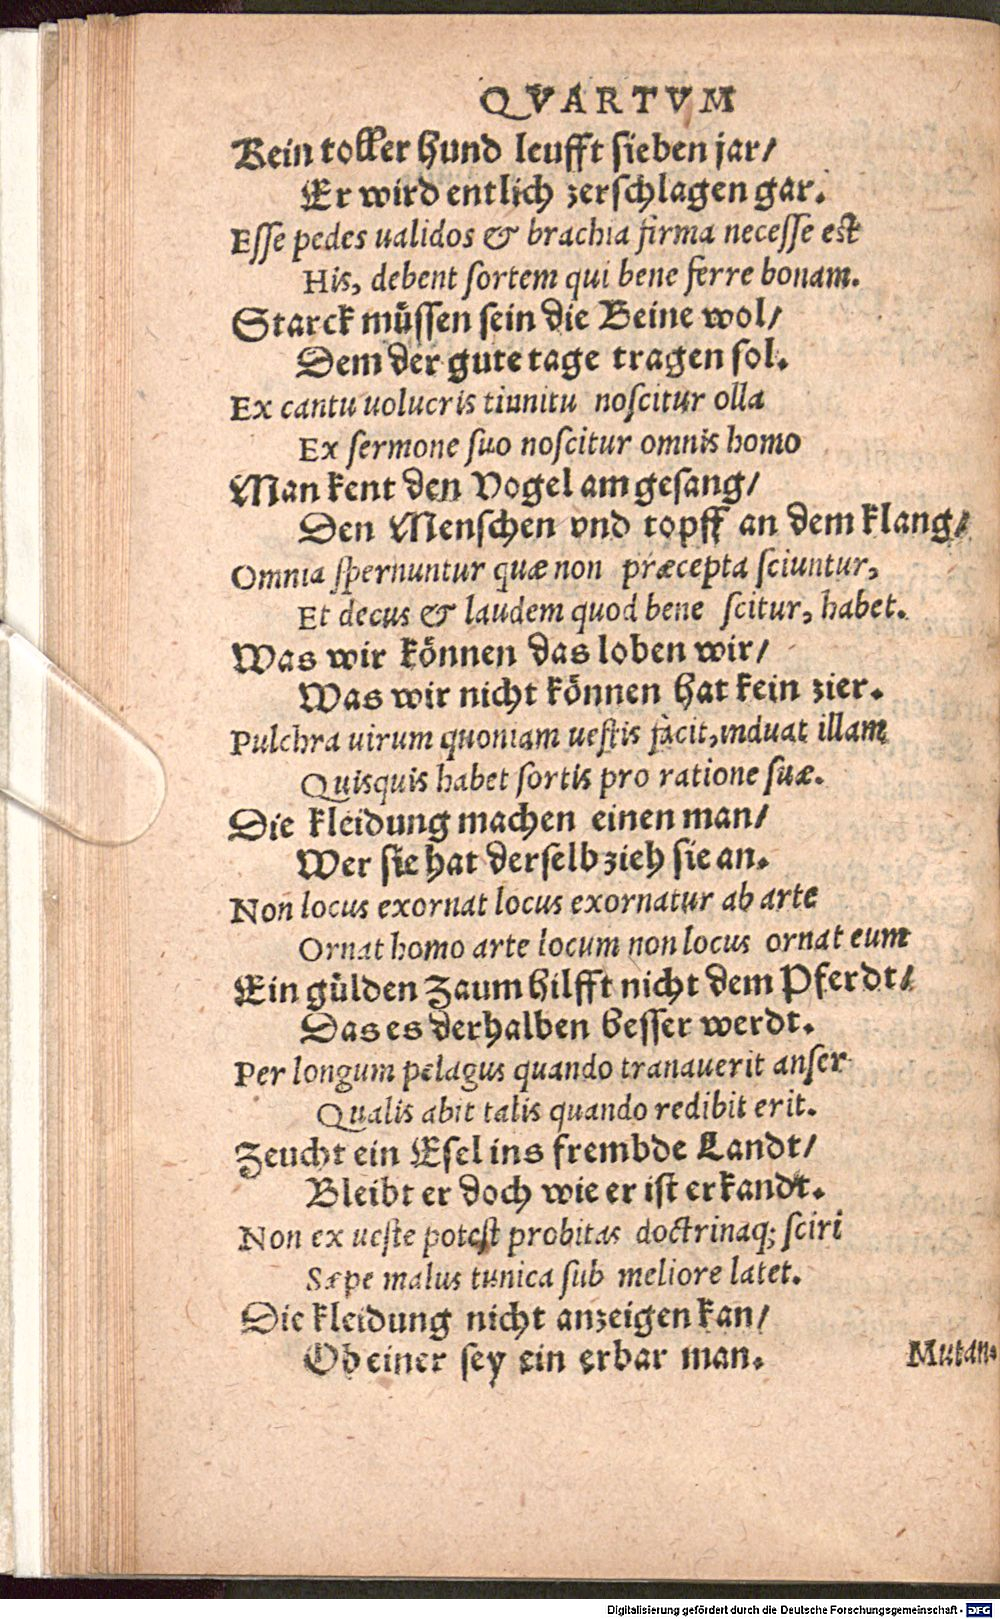 QVARTVM
Kein toller hund leufft sieben jar/
Er wird entlich zerschlagen gar.
Esse pedes ualidos & brachia firma necesse est
His, debent sortem qui bene ferre bonam.
Starck müssen sein die Beine wol/
Dem der gute tage tragen sol.
Ex cantu uolucris tinnitu noscitur olla
Ex sermone suo noscitur omnis homo
Man kent den Vogel am gesang/
Den Menschen vnd topff an dem klang/
Omnia spernuntur quæ non præcepta sciuntur,
Et decus & laudem quod bene scitur, habet.
Was wir können das loben wir/
Was wir nicht können hat kein zier.
Pulchra uirum quoniam uestis facit, induat illam
Quisquis habet sortis pro ratione suæ.
Die kleidung machen einen man/
Wer sie hat derselb zieh sie an.
Non locus exornat locus exornatur ab arte
Ornat homo arte locum non locus ornat eum
Ein gülden Zaum hilfft nicht dem Pferdt/
Das es derhalben besser werdt.
Per longum pelagus quando tranauerit anser
Qualis abit talis quando redibit erit.
Zeucht ein Esel ins frembde Landt/
Bleibt er doch wie er ist erkandt.
Non ex ueste potest probitas doctrinaq; sciri
Sæpe malus tunica sub meliore latet.
Die kleidung nicht anzeigen kan/
Ob einer sey ein erbar man.
Mutan-
Digitalisierung gefördert durch die Deutsche Forschungsgemeinschaft - DFG